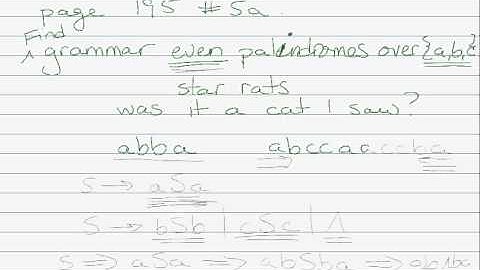 page 195 # 5a.
Find
^ grammar even palindromes over {a,b,
star rats
was it a cat I saw?
abba abccaaccba
S → aSa
S → bSb | cSc | Λ
S ⇒ aSa ⇒ abSba ⇒